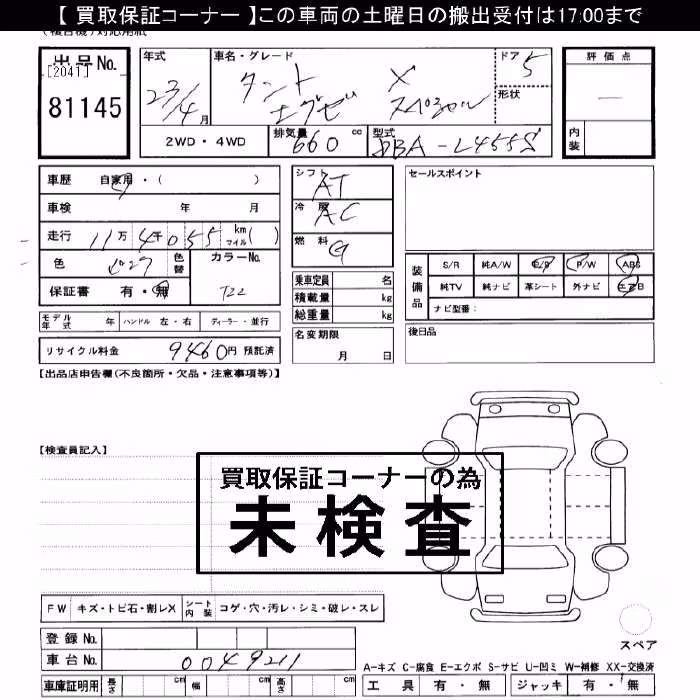 【 買取保証コーナー 】この車両の土曜日の搬出受付は17:00まで
出品No.
[2041]
81145
年式
23/4
月
車名・グレード
タント X
エグゼ スペシャル
ドア 5
形状
評価点
内装
2WD・4WD
排気量 660 cc
型式 DBA-L455S
車歴 自家用・( )
車検 年 月
走行 11万 4千 055 km マイル( )
色
色替
カラーNo.
T22
保証書 有・無
モデル年式 年 ハンドル 左・右 ディーラー・並行
リサイクル料金 9460円 預託済
シフト AT
冷房 AC
燃料 G
乗車定員 名
積載量 kg
総重量 kg
名変期限
月 日
セールスポイント
装備品
S/R 純A/W P/S P/W ABS
純TV 純ナビ 革シート 外ナビ エアB
ナビ型番:
後日品
【出品店申告欄(不良箇所・欠品・注意事項等)】
【検査員記入】
買取保証コーナーの為
未検査
FW キズ・トビ石・割レX シート内装 コゲ・穴・汚レ・シミ・破レ・スレ
スペア
登録No.
車台No. 0049211
A-キズ C-腐食 E-エクボ S-サビ U-凹ミ W-補修 XX-交換済
車庫証明用 長さ cm 幅 cm 高さ cm
工具 有・無 ジャッキ 有・無